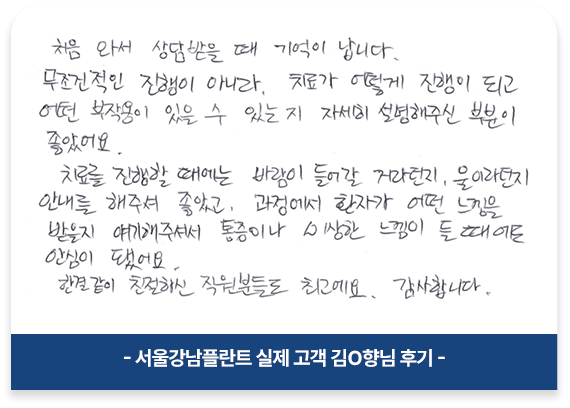 처음 와서 상담받을 때 기억이 납니다.
무조건적인 진행이 아니라, 치료가 어떻게 진행이 되고
어떤 부작용이 있을 수 있는지 자세히 설명해주신 부분이
좋았어요.
치료를 진행할 때에는 바람이 들어갈 거라던지, 물이라던지
안내를 해주셔 좋았고, 과정에서 환자가 어떤 느낌을
받을지 얘기해주셔서 통증이나 이상한 느낌이 들 때에도
안심이 됐어요.
한결같이 친절하신 직원분들도 최고예요. 감사합니다.
- 서울강남플란트 실제 고객 김O향님 후기 -